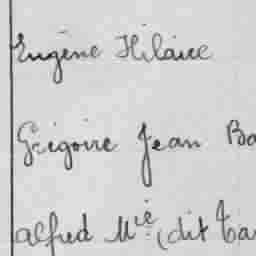 Eugène Hilaire
Grégoire Jean Ba
alfred Mie (dit